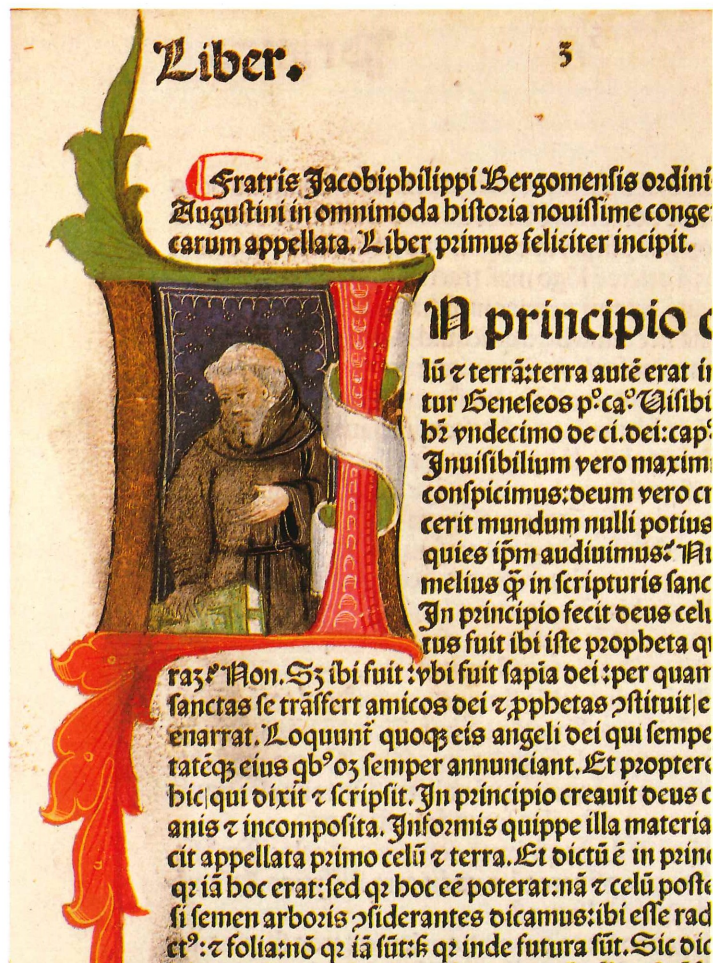 Liber. 3
Fratris Jacobiphilippi Bergomensis ordini
Augustini in omnimoda historia nouissime conge
carum appellata. Liber primus feliciter incipit.
N principio c
lū ⁊ terrā:terra autē erat in
tur Geneseos pͦ.caͦ. Uisibi
br̄ vndecimo de ci.dei:capͦ
Inuisibilium vero maxim
conspicimus:deum vero cr
cerit mundum nulli potius
quies ip̄m audiuimus? Nu
melius qꝫ̄ in scripturis sanc
In principio fecit deus celu
tus fuit ibi iste propheta qu
raz? Non. Sꝫ ibi fuit:vbi fuit sapīa dei:per quam
sanctas se trāsfert amicos dei ⁊ ꝓphetas ꝯstituit|e
enarrat. Loquunt᷑ quoqꝫ eis angeli dei qui sempe
tatēqꝫ eius qbꝰ oꝫ semper annunciant. Et proptere
hic|qui dixit ⁊ scripsit. In principio creauit deus c
anis ⁊ incomposita. Informis quippe illa materia
cit appellata primo celū ⁊ terra. Et dictū ē in prin
qꝛ iā hoc erat:sed qꝛ hoc eē poterat:nā ⁊ celū poste
si semen arboris ꝯsiderantes dicamus:ibi esse rad
ctꝰ:⁊ folia:nō qꝛ iā sūt:ꝭ qꝛ inde futura sūt. Sic dic